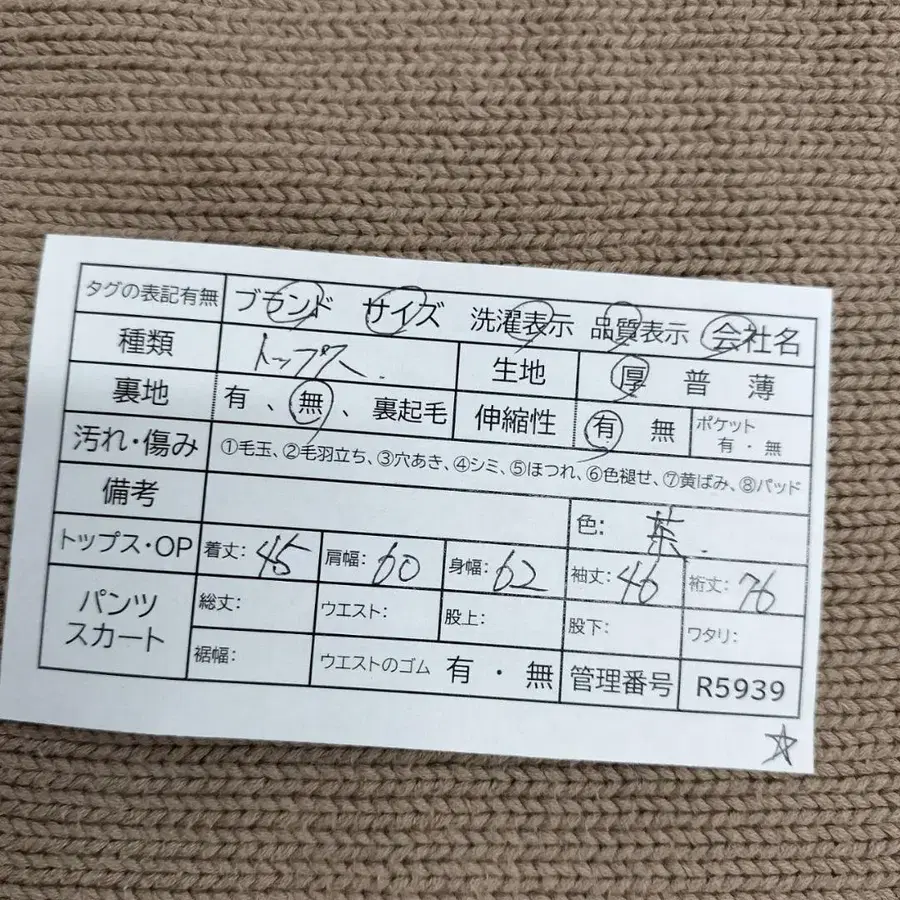 タグの表記有無 ブランド サイズ 洗濯表示 品質表示 会社名
種類 トップス. 生地 厚 普 薄
裏地 有、無、裏起毛 伸縮性 有 無 ポケット 有・無
汚れ・傷み ①毛玉、②毛羽立ち、③穴あき、④シミ、⑤ほつれ、⑥色褪せ、⑦黄ばみ、⑧パッド
備考 色: 茶.
トップス・OP 着丈: 45 肩幅: 60 身幅: 62 袖丈: 46 裄丈: 76
パンツ スカート 総丈: ウエスト: 股上: 股下: ワタリ:
裾幅: ウエストのゴム 有・無 管理番号 R5939